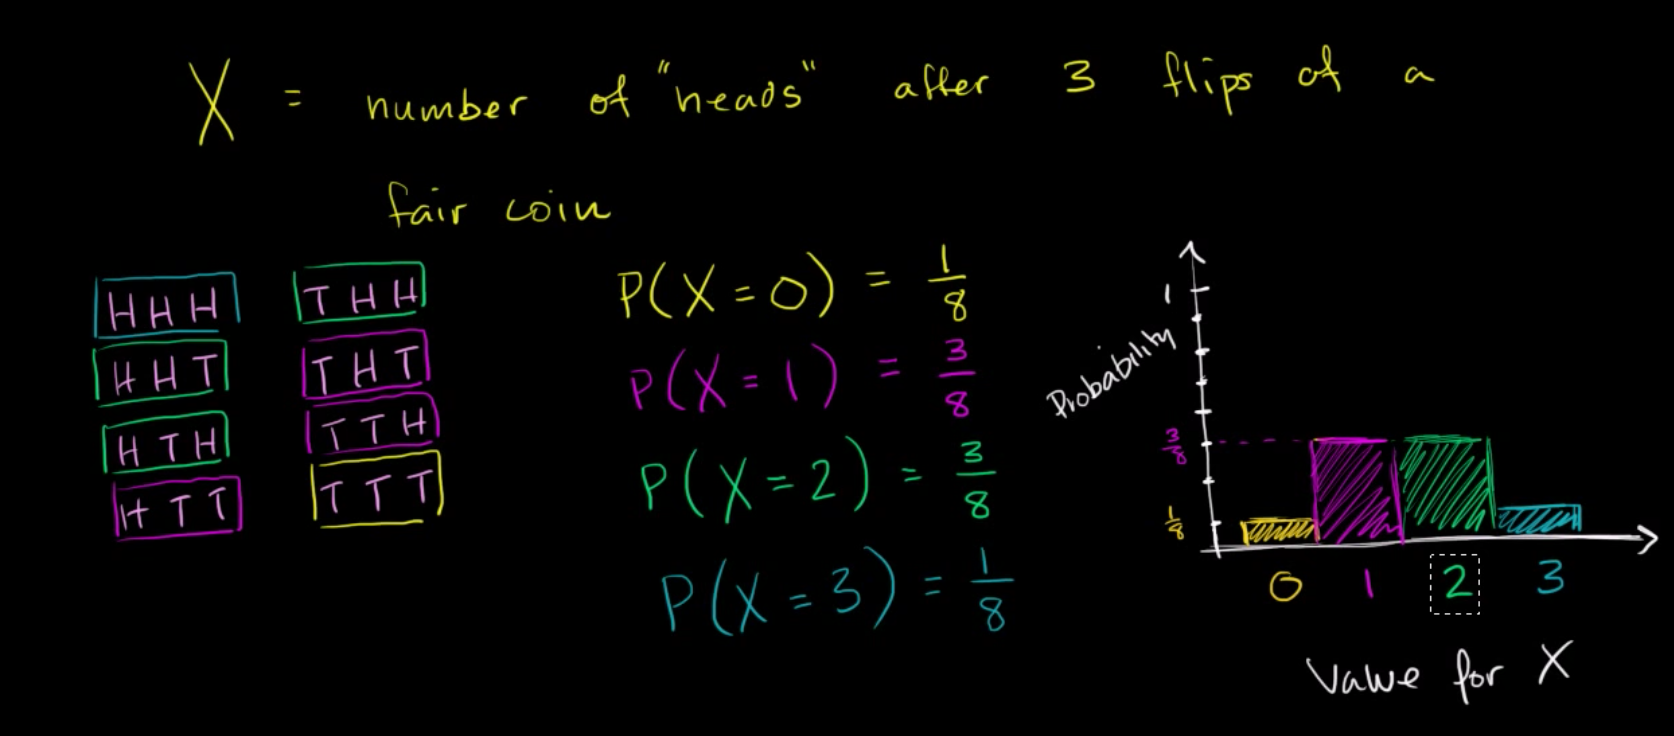 X = number of "heads" after 3 flips of a
fair coin
H H H
T H H
H H T
T H T
H T H
T T H
H T T
T T T
P(X = 0) = 1/8
P(X = 1) = 3/8
P(X = 2) = 3/8
P(X = 3) = 1/8
Probability
1
3/8
1/8
0 1 2 3
Value for X